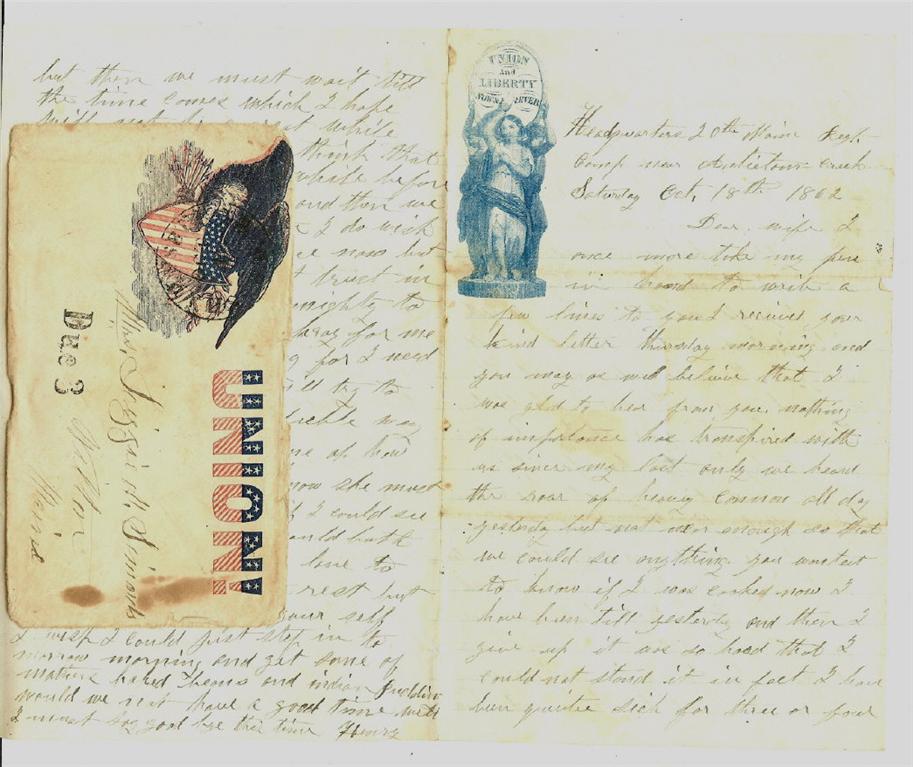 UNION
and
LIBERTY
NOW & FOREVER
Headquarters 20th Main Regt.
Camp near Antietam Creek
Saturday Oct, 18th 1862
Dear wife I
once more take my pen
in hand to write a
few lines to you I recieved your
kind letter thursday morning and
you may as well believe that I
was glad to hear from you. nothing
of importance has transpired with
us since my last only we heard
the roar of heavy cannon all day
yesterday but not near enough so that
we could see anything you wanted
to know if I was cook now I
have been till yesterday and then I
give up it as so hard that I
could not stand it in fact I have
been quite sick for three or four
but then we must wait till
the time comes which I hope
will not be a great while
think that
before
and then we
I do wish
now but
trust in
almighty to
pray for me
for I need
try to
way
me of how
now she must
I could see
could both
love to
rest but
your self
I wish I could just step in to
morrow morning and get some of
mothers baked beans and indian puddin
would we not have a good time well
I must say good bye this time Henry
UNION!
Due 3
Mrs. Lizzie M Simonds
Wilton
Maine